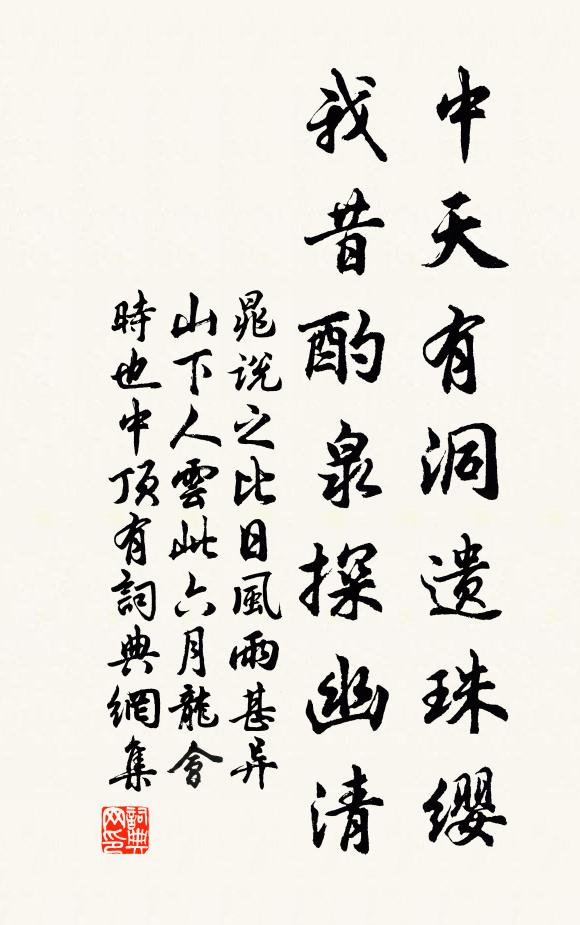 中天有洞遗珠缨
我昔酌泉探幽清
晁说之比日風雨甚异
山下人雲此六月龍會
時也中頂有詞典網集
詞典
网印